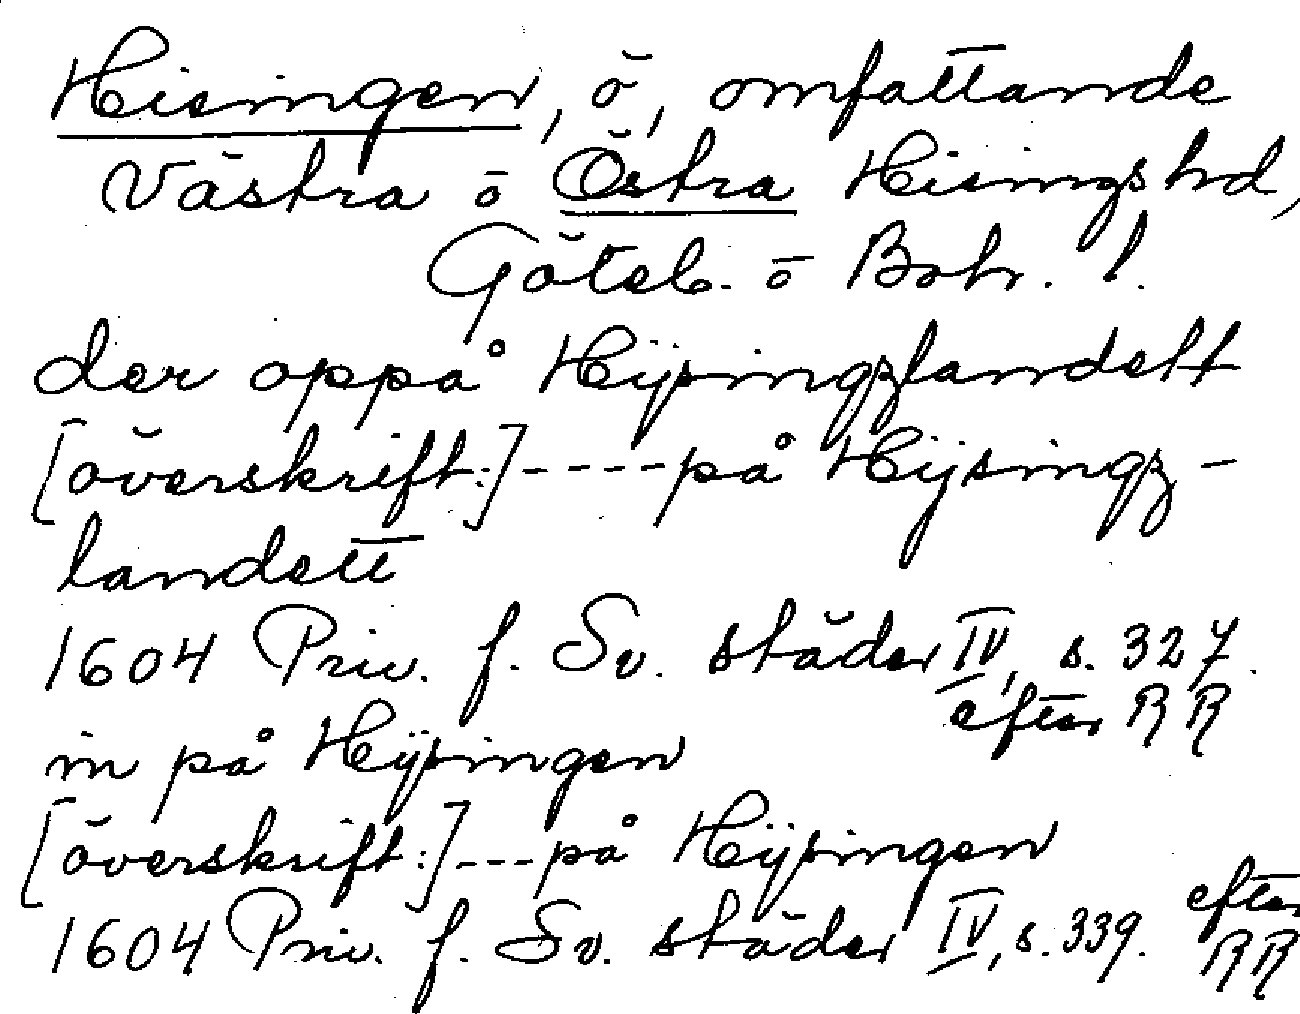 Hisingen, ö, omfattande
Västra o Östra Hisings hd,
Göteb. o Boh. l.
der oppå Hÿsingzlandett
[överskrift:]-----på Hijsingz-
landett
1604 Priv. f. Sv. städer IV, s. 327.
efter RR
in på Hÿsingen
[överskrift:]---på Hÿsingen
1604 Priv. f. Sv. städer IV, s. 339. efter
RR